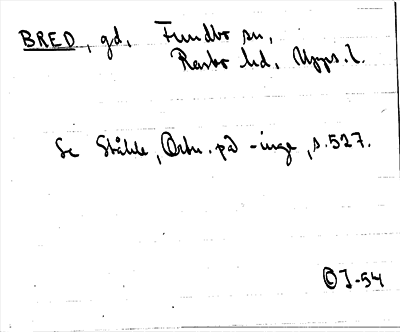 BRED, gd, Funbo sn,
Rasbo hd, Upps. l.
Se Ståhle, Ortn. på -inge, s. 527.
OJ-54